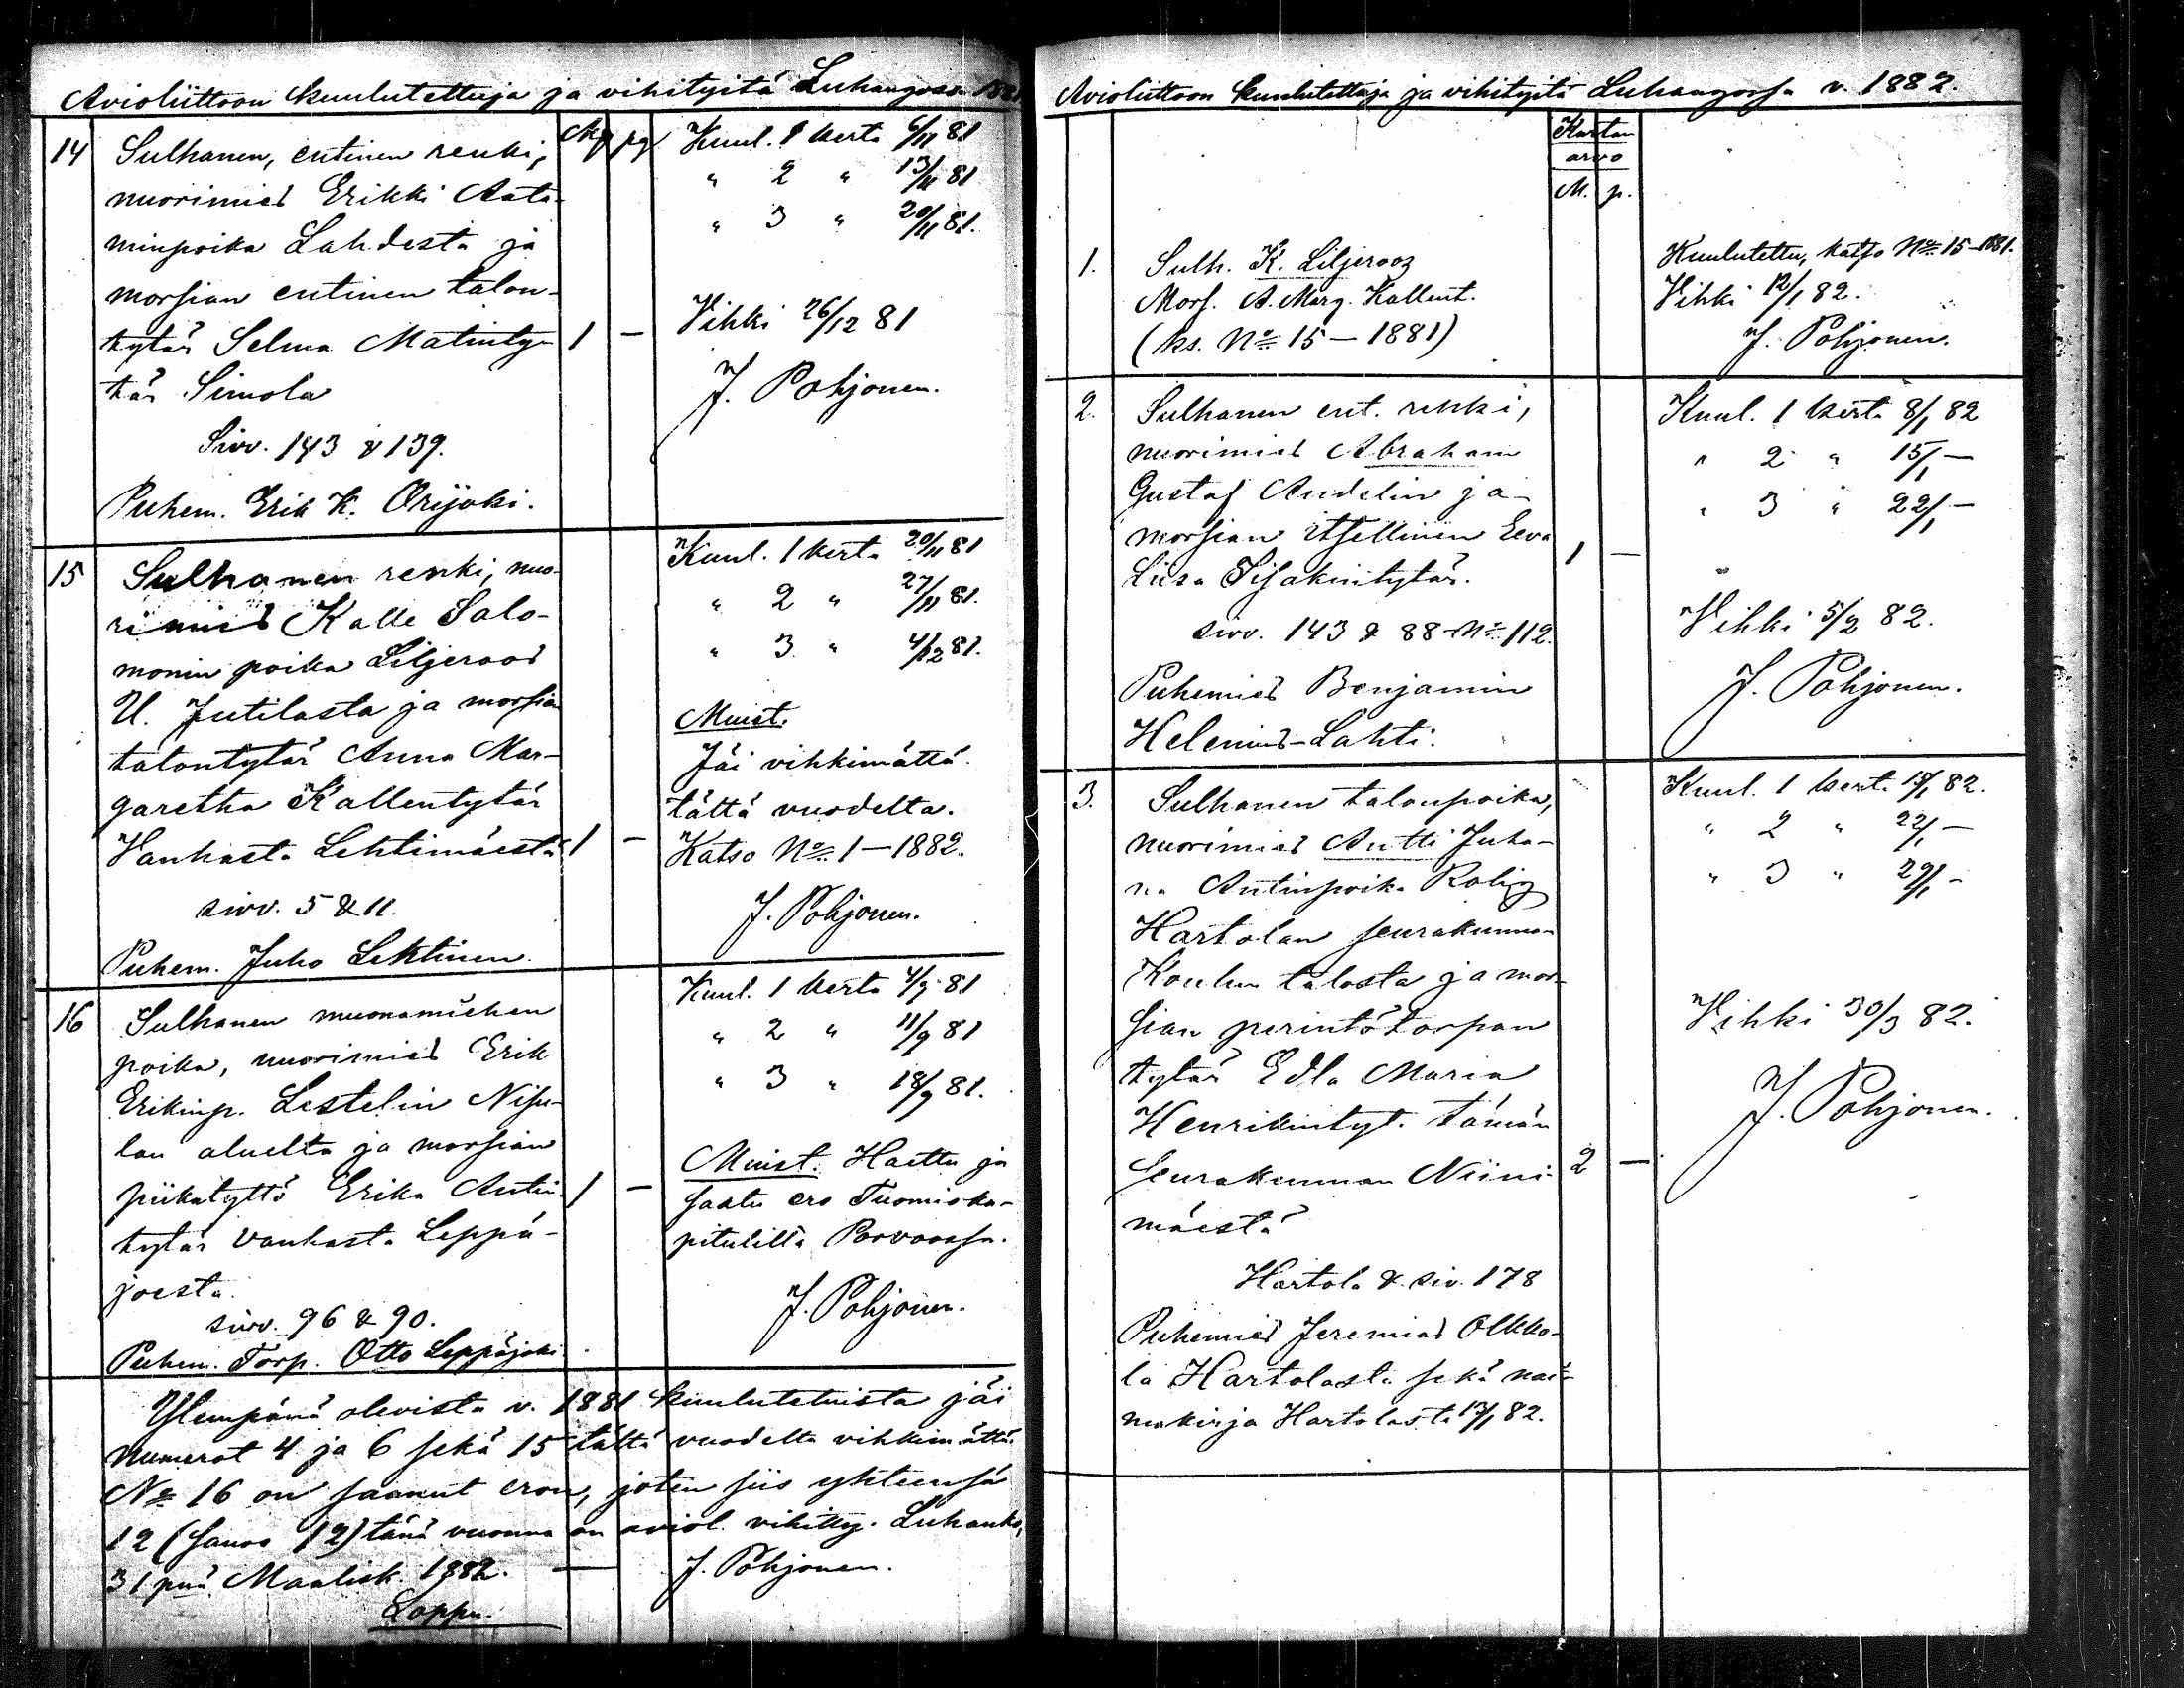 Avioliittoon kuulutettuja ja vihityitä Luhangossa 1881
14 Sulhanen, entinen renki,
nuorimies Erikki Aata-
minpoika Lahdesta ja
morsian entinen talon-
tytär Selma Matinty-
tär Simola
Sivv. 143 & 139.
Puhem. Erik K. Orijoki.
Mk pg
1 —
Kuul. 1 kerta 6/11 81
" 2 " 13/11 81
" 3 " 20/11 81.
Vihki 26/12 81
J. Pohjonen.
15 Sulhanen renki, nuo-
rimies Kalle Salo-
monin poika Liljeroos
U. Jutilasta ja morsian
talontytär Anna Mar-
garetha Kallentytär
Vanhasta Lehtimäestä
sivv. 5 & 11.
Puhem. Juho Lehtinen.
1 —
Kuul. 1 kerta 20/11 81
" 2 " 27/11 81.
" 3 " 4/12 81.
Muist.
Jäi vihkimättä
tältä vuodelta.
Katso No 1 — 1882.
J. Pohjonen.
16 Sulhanen muonamiehen
poika, nuorimies Erik
Erikinp. Lestelin Nisu-
lan alueelta ja morsian
piikatyttö Erika Antin-
tytär vanhasta Leppä-
joesta.
sivv. 96 & 90.
Puhem. Torp. Otto Leppäjoki.
1 —
Kuul. 1 kerta 4/9 81
" 2 " 11/9 81
" 3 " 18/9 81.
Muist. Haettu ja
saatu ero Tuomioka-
pitulilta Porvoossa.
J. Pohjonen.
Ylempänä olevista v. 1881 kuulutetuista jäi
numerot 4 ja 6 sekä 15 tältä vuodelta vihkimättä.
No 16 on saanut eron, joten siis yhteensä
12 (sanoo 12) tänä vuonna on aviol. vihitty. Luhanko,
31 pnä Maalisk. 1882. — J. Pohjonen.
Loppu.
Avioliittoon kuulutettuja ja vihityitä Luhangossa v. 1882.
Kartan
arvo
M. p.
1. Sulh. K. Liljerooz
Mors. A. Marg. Kallent.
(ks. No 15 — 1881)
Kuulutettu, katso No 15–1881.
Vihki 12/1 82.
J. Pohjonen.
2. Sulhanen ent. renki,
nuorimies Abraham
Gustaf Andelin ja
morsian itsellinen Eeva
Liisa Iisakintytär.
sivv. 143 & 88 No 112.
Puhemies Benjamin
Helenius-Lahti.
1 —
Kuul. 1 kerta 8/1 82
" 2 " 15/1 —
" 3 " 22/1 —
Vihki 5/2 82.
J. Pohjonen.
3. Sulhanen talonpoika,
nuorimies Antti Juha-
na Antinpoika Rolig
Hartolan seurakunnan
Koulun talosta ja mor-
sian perintötorpan
tytär Edla Maria
Henrikintyt. tämän
seurakunnan Niini-
mäestä
Hartola & siv. 178
Puhemies Jeremias Olkko-
la Hartolasta sekä nai-
makirja Hartolasta 13/1 82.
2 —
Kuul. 1 kerta 15/1 82.
" 2 " 22/1 —
" 3 " 29/1 —
Vihki 30/3 82.
J. Pohjonen.